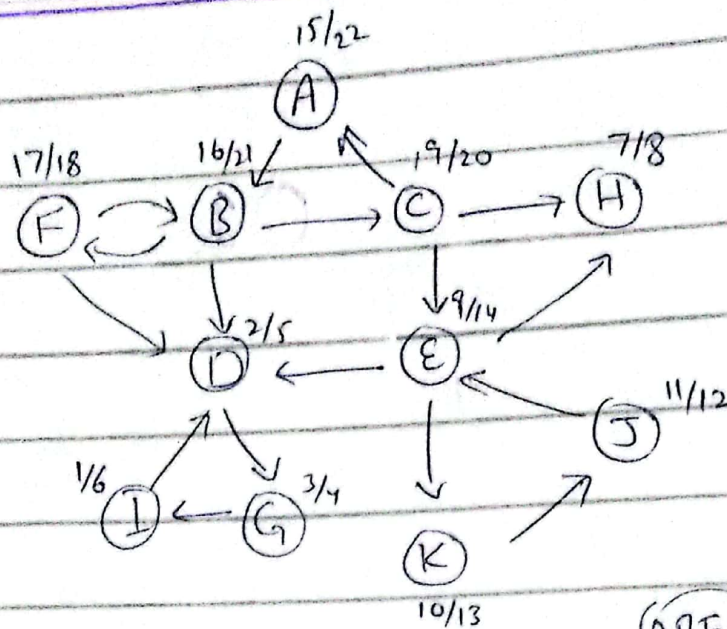 15/22
A
17/18
16/21
19/20
7/8
F
B
C
H
2/5
9/14
D
E
11/12
J
1/6
3/4
I
G
K
10/13